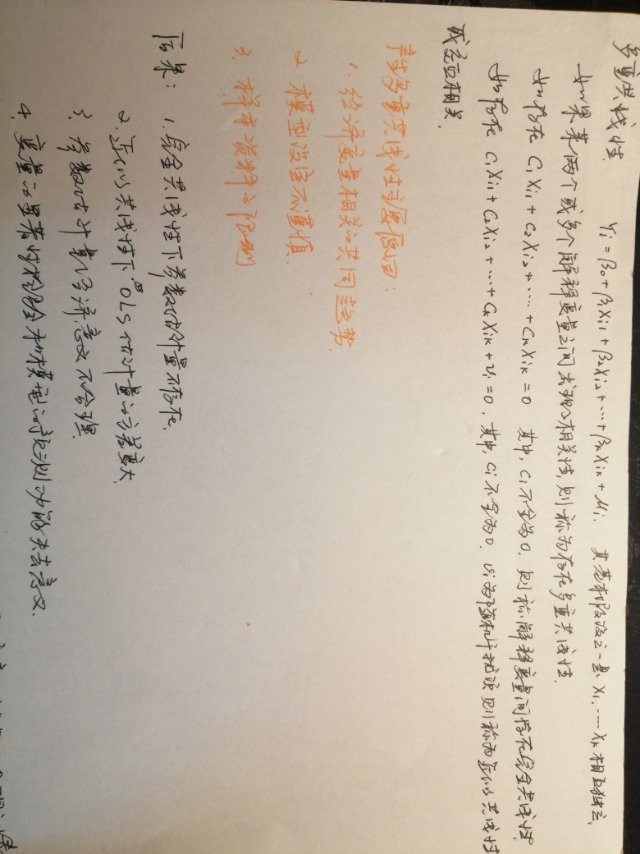 多重共线性
Yi = β0 + β1Xi1 + β2Xi2 + … + βkXik + μi. 其基本假设之一是 X1, … Xk 相互独立.
如果某两个或多个解释变量之间出现了相关性,则称为存在多重共线性.
如果存在 C1Xi1 + C2Xi2 + … + CkXik = 0 其中, Ci不全为0. 则称解释变量间存在完全共线性.
如果存在 C1Xi1 + C2Xi2 + … + CkXik + vi = 0, 其中, Ci不全为0. vi为随机干扰项则称为近似共线性
或交互相关.
产生多重共线性的原因:
1. 经济变量相关的共同趋势.
2. 模型设定不谨慎.
3. 样本资料的限制
后果: 1. 完全共线性下参数估计量不存在.
2. 近似共线性下OLS估计量的方差变大
3. 参数估计量经济意义不合理.
4. 变量的显著性检验和模型的预测功能失去意义.